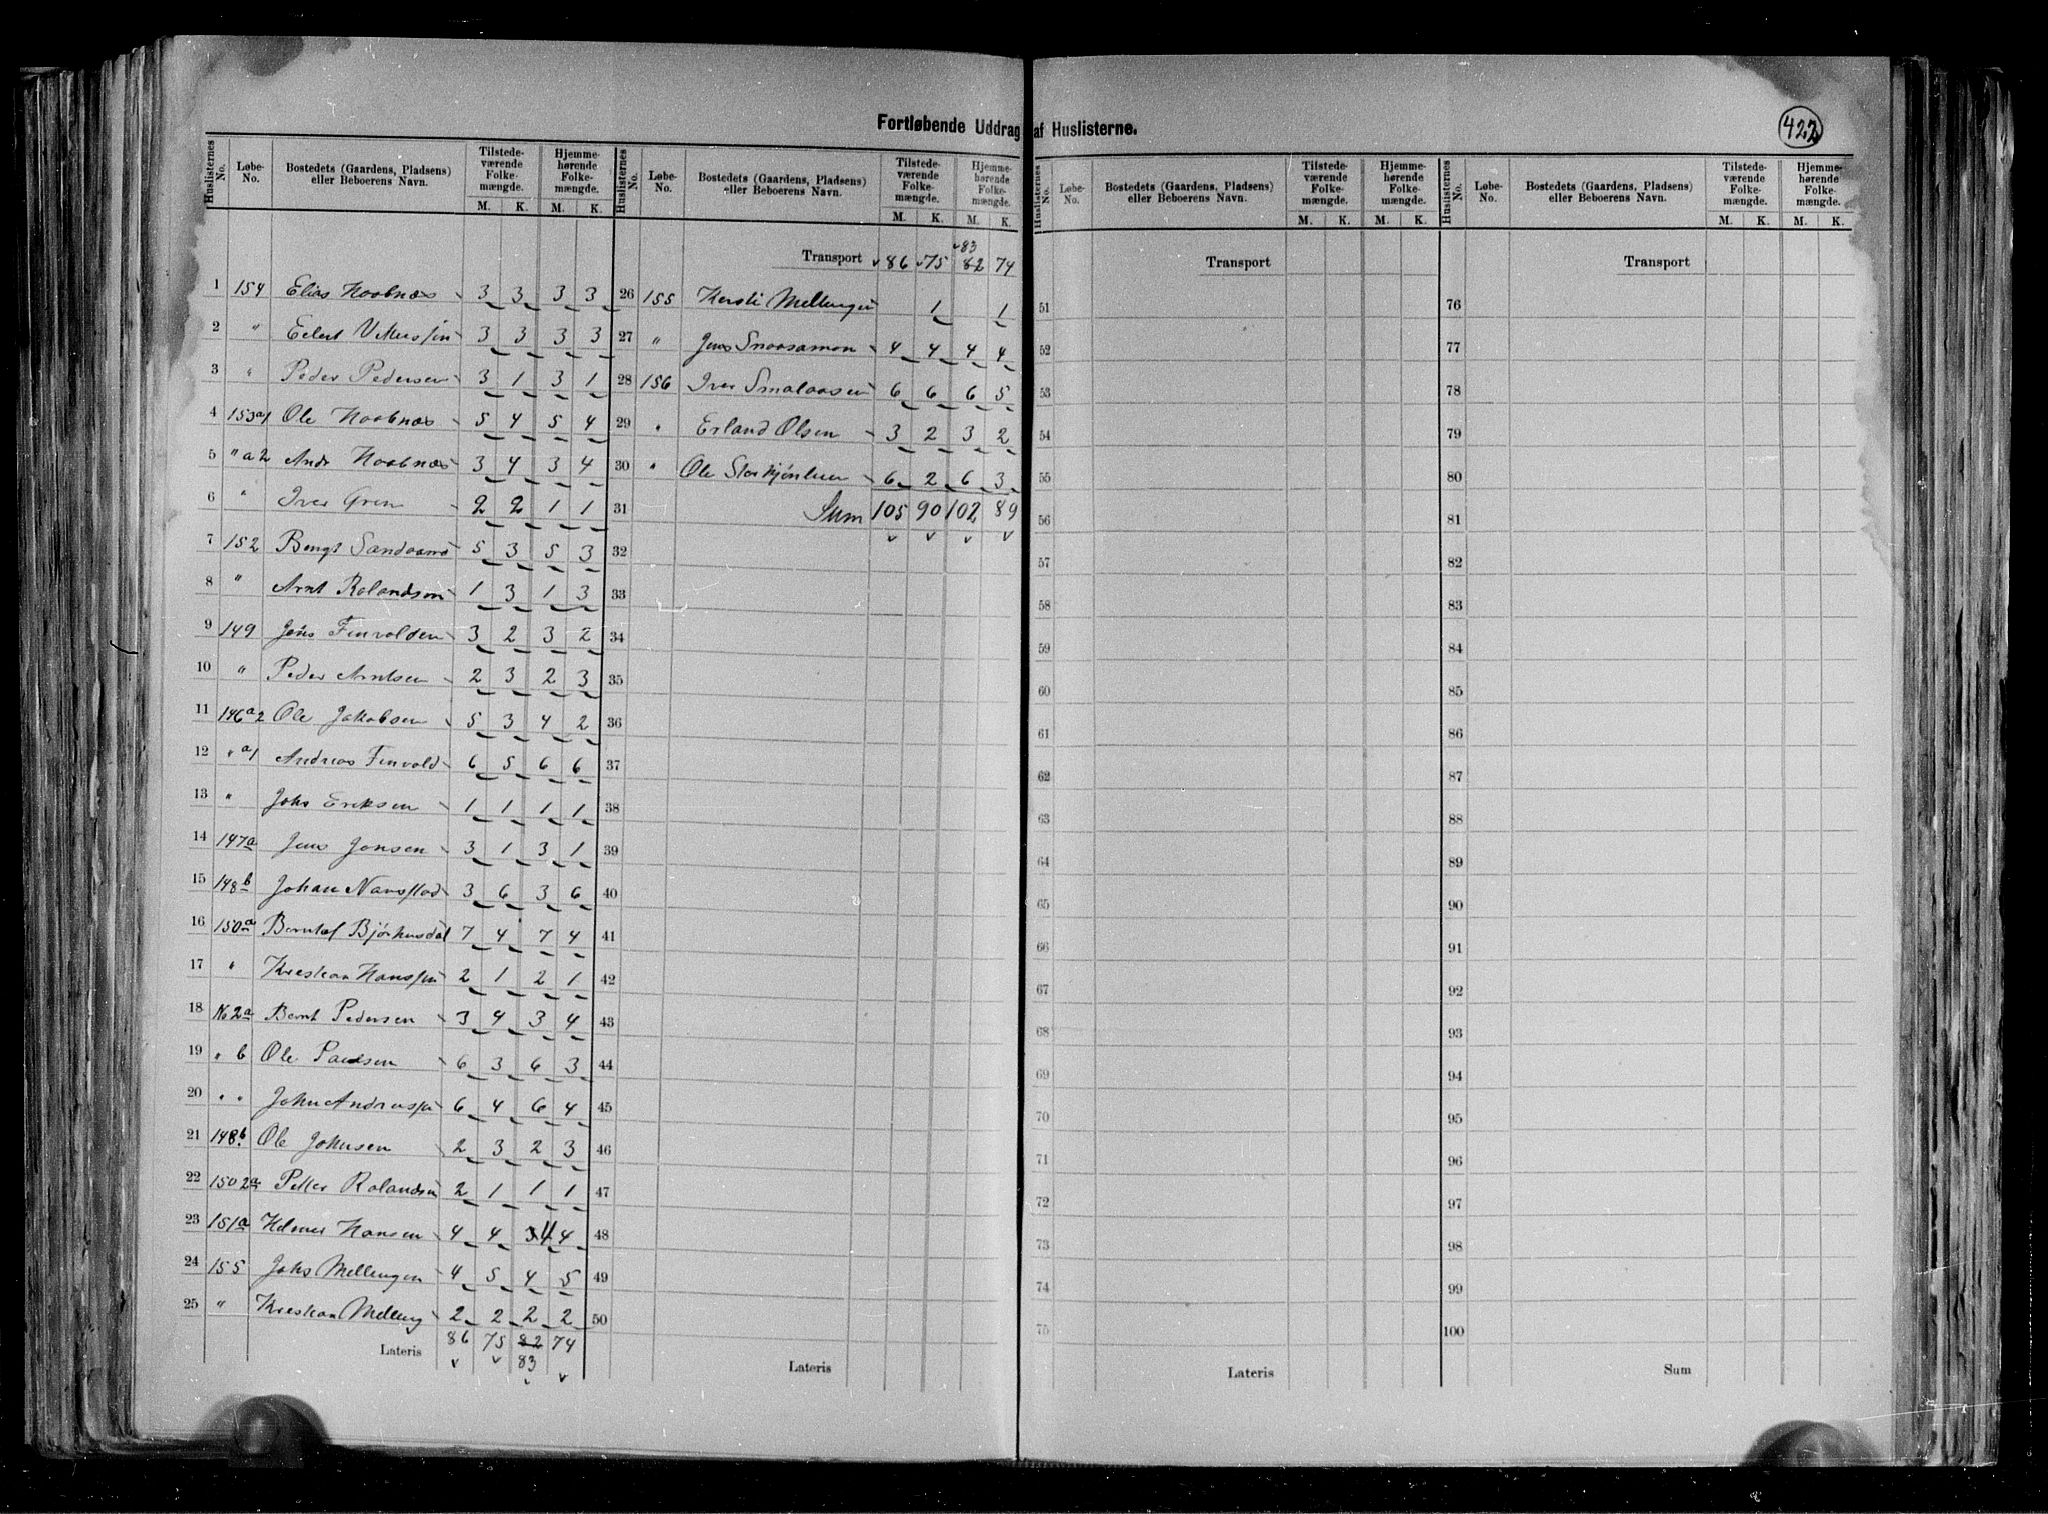 Fortløbende Uddrag af Huslisterne.
422
Huslisternes No. Løbe-No. Bostedets (Gaardens, Pladsens) eller Beboerens Navn. Tilstedeværende Folkemængde. M. K. Hjemmehørende Folkemængde. M. K.
1 154 Elias Haabnæs 3 3 3 3
2 " Edert 3 3 3 3
3 " Peder Pedersen 3 1 3 1
4 153a1 Ole Haabnæs 5 4 5 4
5 " a2 Andr Haabnæs 3 4 3 4
6 " Iver Gren 2 2 1 1
7 152 Bengt 5 3 5 3
8 " Arnt Rolandsen 1 3 1 3
9 149 Johs Finvolden 3 2 3 2
10 " Peder Arntsen 2 3 2 3
11 146a2 Ole Jakobsen 5 3 4 2
12 " a1 Andreas Finvold 6 5 6 6
13 " Johs Eriksen 1 1 1 1
14 147a Jens Jonsen 3 1 3 1
15 148b Johan 3 6 3 6
16 150a Berntof Bjørhusdal 7 4 7 4
17 " Kristian Hanssen 2 1 2 1
18 No 2a Bernt Pedersen 3 4 3 4
19 " b Ole Paulsen 6 3 6 3
20 " " John Andreassen 6 4 6 4
21 148b Ole Johnsen 2 3 2 3
22 150 2a Petter Rolandsen 2 1 1 1
23 151a Helmer Hansen 4 4 3 4 4
24 155 Johs Mellingen 4 5 4 5
25 " Kristian Melling 2 2 2 2
Lateris 86 75 82 74
83
Huslisternes No. Løbe-No. Bostedets (Gaardens, Pladsens) eller Beboerens Navn. Tilstedeværende Folkemængde. M. K. Hjemmehørende Folkemængde. M. K.
83
Transport 86 75 82 74
26 155 Kersti Mellingen 1 1
27 " Jens Snaasamon 4 4 4 4
28 156 Iver Smalaasen 6 6 6 5
29 " Erland Olsen 3 2 3 2
30 " Ole 6 2 6 3
31 Sum 105 90 102 89
32
33
34
35
36
37
38
39
40
41
42
43
44
45
46
47
48
49
50
Lateris
Huslisternes No. Løbe-No. Bostedets (Gaardens, Pladsens) eller Beboerens Navn. Tilstedeværende Folkemængde. M. K. Hjemmehørende Folkemængde. M. K.
Transport
51
52
53
54
55
56
57
58
59
60
61
62
63
64
65
66
67
68
69
70
71
72
73
74
75
Lateris
Huslisternes No. Løbe-No. Bostedets (Gaardens, Pladsens) eller Beboerens Navn. Tilstedeværende Folkemængde. M. K. Hjemmehørende Folkemængde. M. K.
Transport
76
77
78
79
80
81
82
83
84
85
86
87
88
89
90
91
92
93
94
95
96
97
98
99
100
Sum